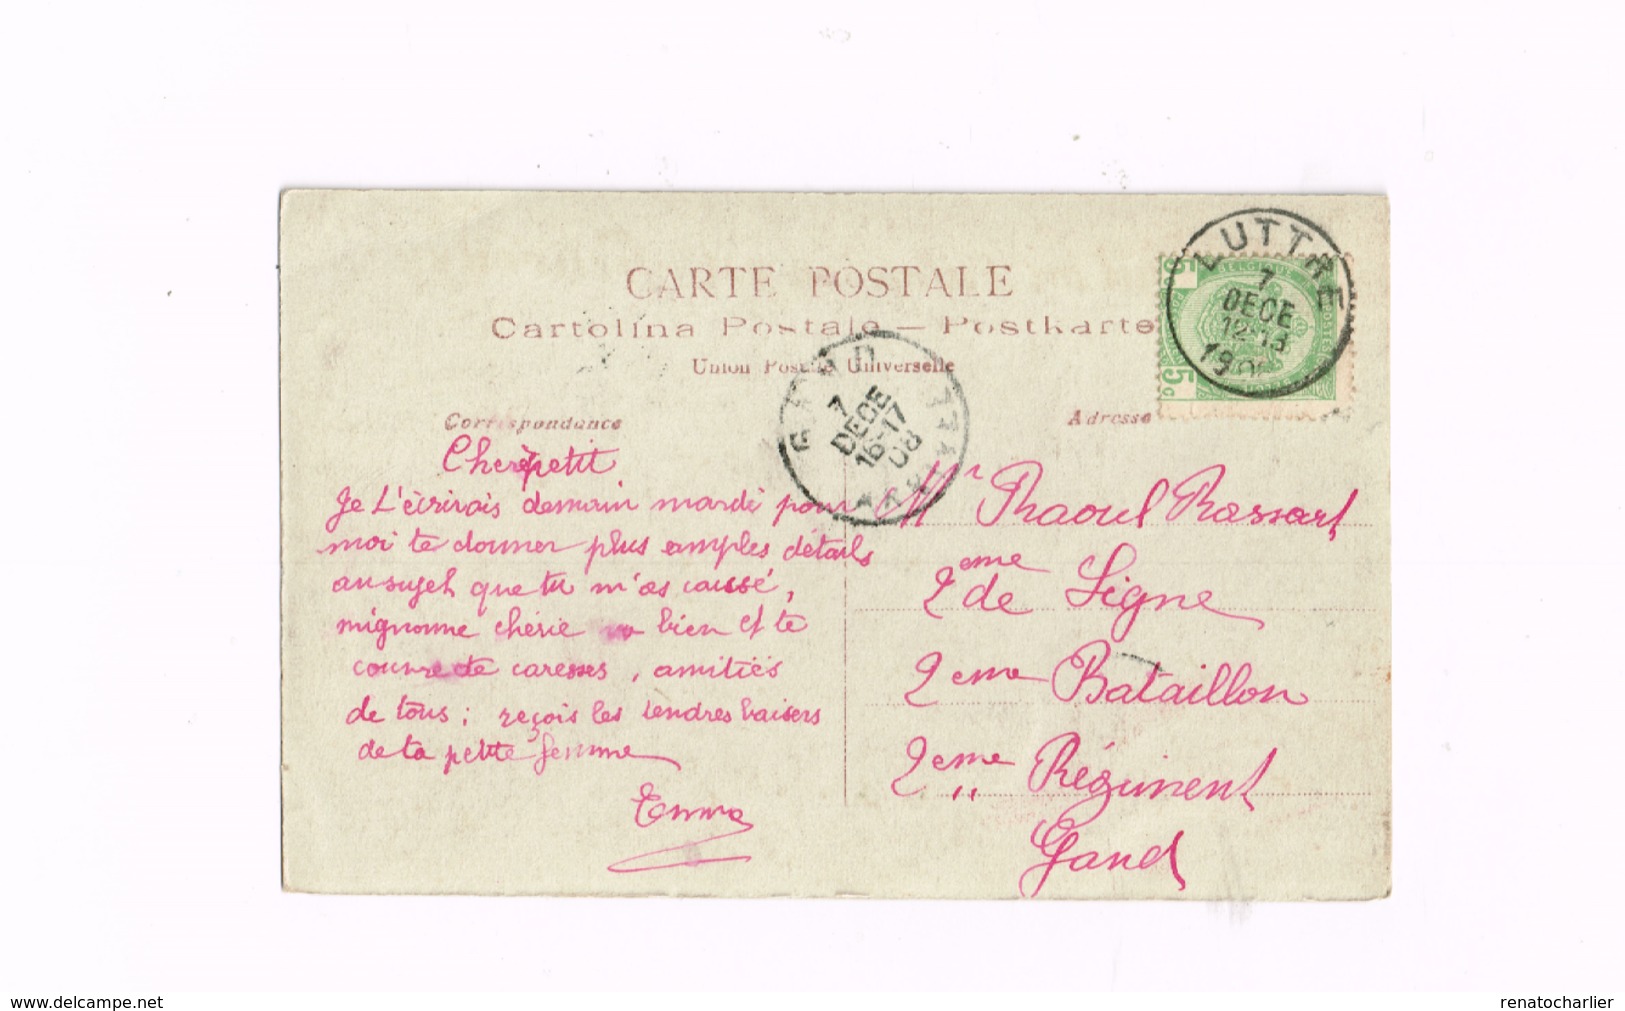 CARTE POSTALE
Cartolina Postale — Postkarte
Union Postale Universelle
LUTTRE
7
DECE
12-13
BELGIQUE
5
5
c
GAND
7
DECE
16-17
08
Correspondance
Cher petit
Je t'écrirais demain mardi pour
moi te donner plus amples détails
au sujet que tu m'as causé,
mignonne chérie va bien et te
couvre de caresses, amitiés
de tous; reçois les tendres baisers
de ta petite femme
Emma
Adresse
Mr Raoul Rassart
2eme de Ligne
2eme Bataillon
2eme Régiment
Gand
www.delcampe.net
renatocharlier